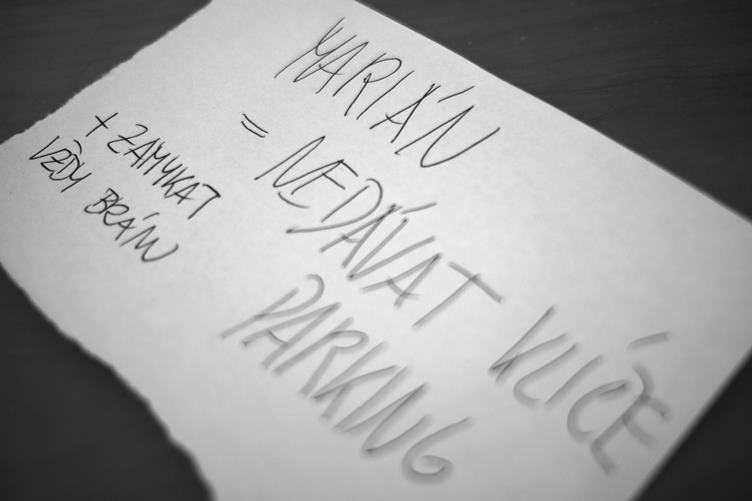 MARIÁN
= NEDÁVAT KLÍČE
PARKING
+ ZAMYKAT
VŽDY BRÁNU